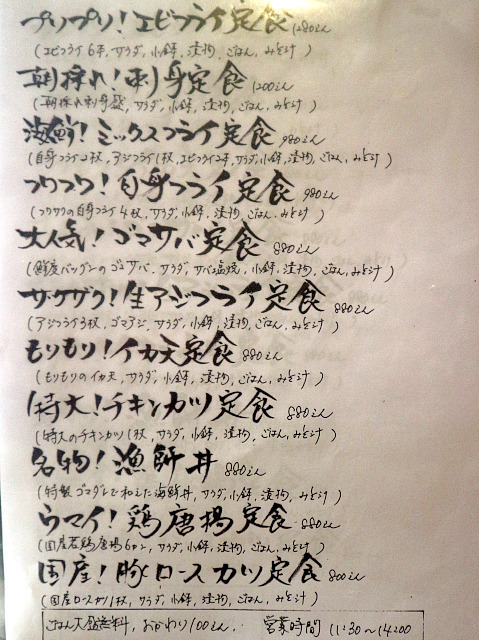 プリプリ！エビフライ定食 1280えん
(エビフライ6本, サラダ, 小鉢, 漬物, ごはん, みそ汁)
朝採れ！刺身定食 1200えん
(朝採れ刺身盛, サラダ, 小鉢, 漬物, ごはん, みそ汁)
海鮮！ミックスフライ定食 980えん
(白身フライ2枚, アジフライ1枚, エビフライ2本, サラダ, 小鉢, 漬物, ごはん, みそ汁)
フワフワ！白身フライ定食 980えん
(フワフワの白身フライ4枚, サラダ, 小鉢, 漬物, ごはん, みそ汁)
大人気！ゴマサバ定食 880えん
(鮮度バツグンのゴマサバ, サラダ, サバ塩焼, 小鉢, 漬物, ごはん, みそ汁)
サクザク！生アジフライ定食 880えん
(アジフライ3枚, ゴマアジ, サラダ, 小鉢, 漬物, ごはん, みそ汁)
もりもり！イカ天定食 880えん
(もりもりのイカ天, サラダ, 小鉢, 漬物, ごはん, みそ汁)
特大！チキンカツ定食 880えん
(特大のチキンカツ1枚, サラダ, 小鉢, 漬物, ごはん, みそ汁)
名物！漁師丼 880えん
(特製ゴマダレで和えた海鮮丼, サラダ, 小鉢, 漬物, みそ汁)
ウマイ！鶏唐揚定食 880えん
(国産若鶏唐揚6コ, サラダ, 小鉢, 漬物, ごはん, みそ汁)
国産！豚ロースカツ定食 800えん
(国産ロースカツ1枚, サラダ, 小鉢, 漬物, ごはん, みそ汁)
ごはん大盛無料, おかわり100えん, 営業時間 11:30～14:00